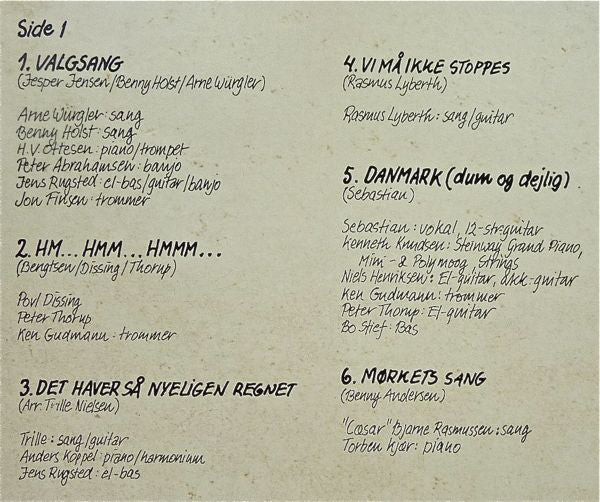 Side 1
1. VALGSANG
(Jesper Jensen/Benny Holst/Arne Würgler)
Arne Würgler: sang
Benny Holst: sang
H.V. Ottesen: piano/trompet
Peter Abrahamsen: banjo
Jens Rugsted: el-bas/guitar/banjo
Jon Finsen: trommer
2. HM... HMM... HMMM...
(Bengtsen/Dissing/Thorup)
Povl Dissing
Peter Thorup
Ken Gudmann: trommer
3. DET HAVER SÅ NYELIGEN REGNET
(Arr. Trille Nielsen)
Trille: sang/guitar
Anders Koppel: piano/harmonium
Jens Rugsted: el-bas
4. VI MÅ IKKE STOPPES
(Rasmus Lyberth)
Rasmus Lyberth: sang/guitar
5. DANMARK (dum og dejlig)
(Sebastian)
Sebastian: vokal, 12-str.guitar
Kenneth Knudsen: Steinway Grand Piano,
Mini- & Polymoog Strings
Niels Henriksen: El-guitar, akk.-guitar
Ken Gudmann: trommer
Peter Thorup: El-guitar
Bo Stief: Bas
6. MØRKETS SANG
(Benny Andersen)
"Cæsar" Bjarne Rasmussen: sang
Torben Kjær: piano